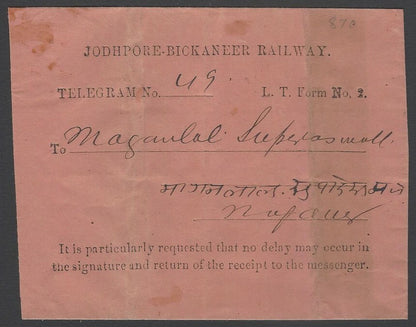 870
JODHPORE-BICKANEER RAILWAY.
TELEGRAM No. 49. L. T. Form No. 2.
To Maganlal
मागनलाल
It is particularly requested that no delay may occur in
the signature and return of the receipt to the messenger.